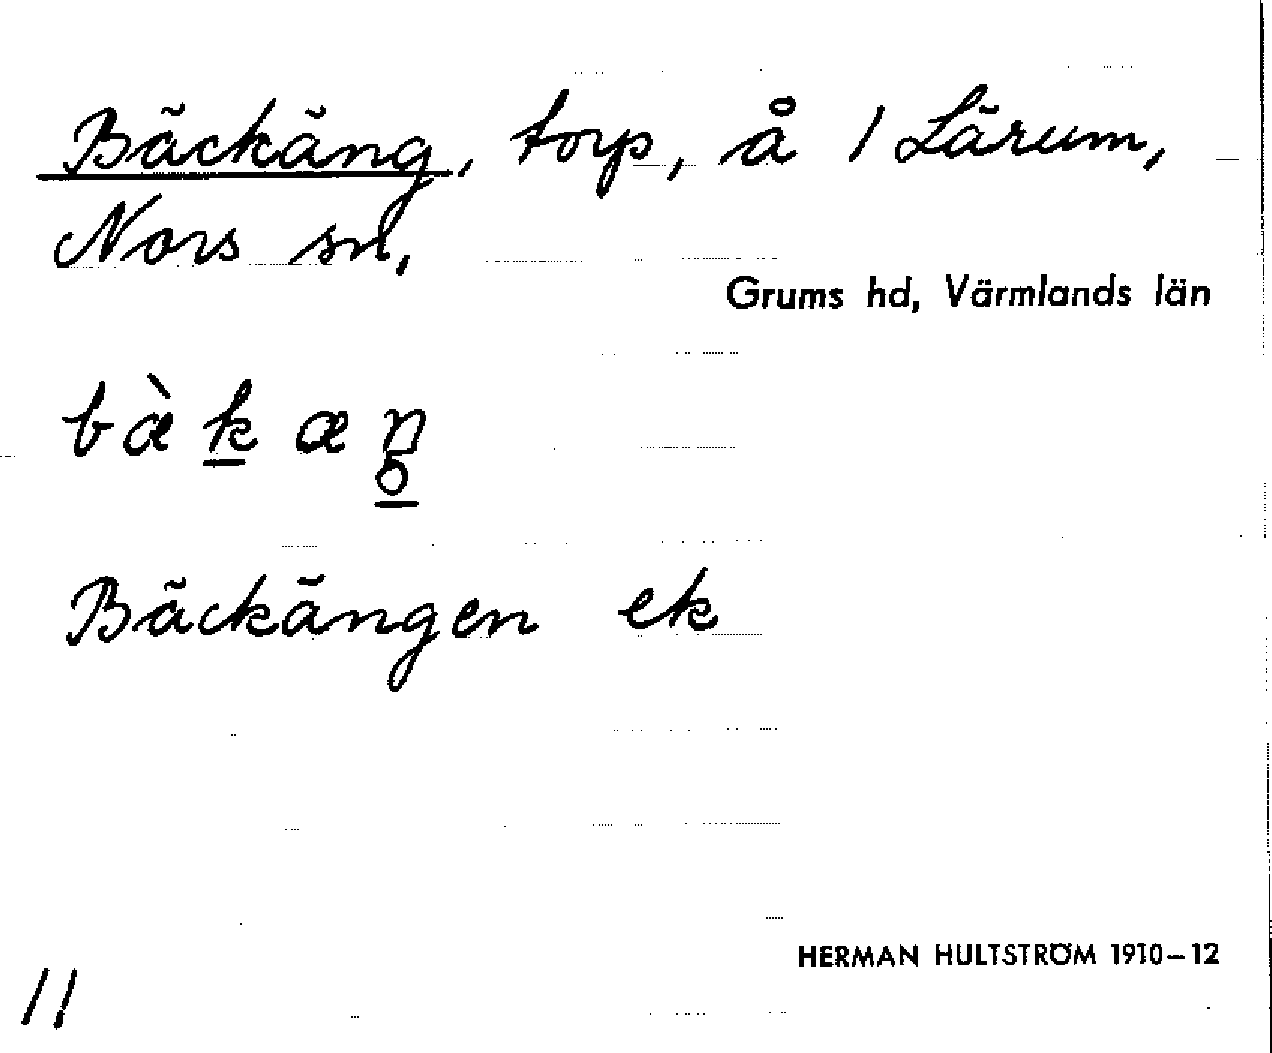 Bäckäng, torp, å 1 Lärum,
Nors sn,
Grums hd, Värmlands län
bæ̀k̲æŋ̲
Bäckängen ek
HERMAN HULTSTRÖM 1910–12
11